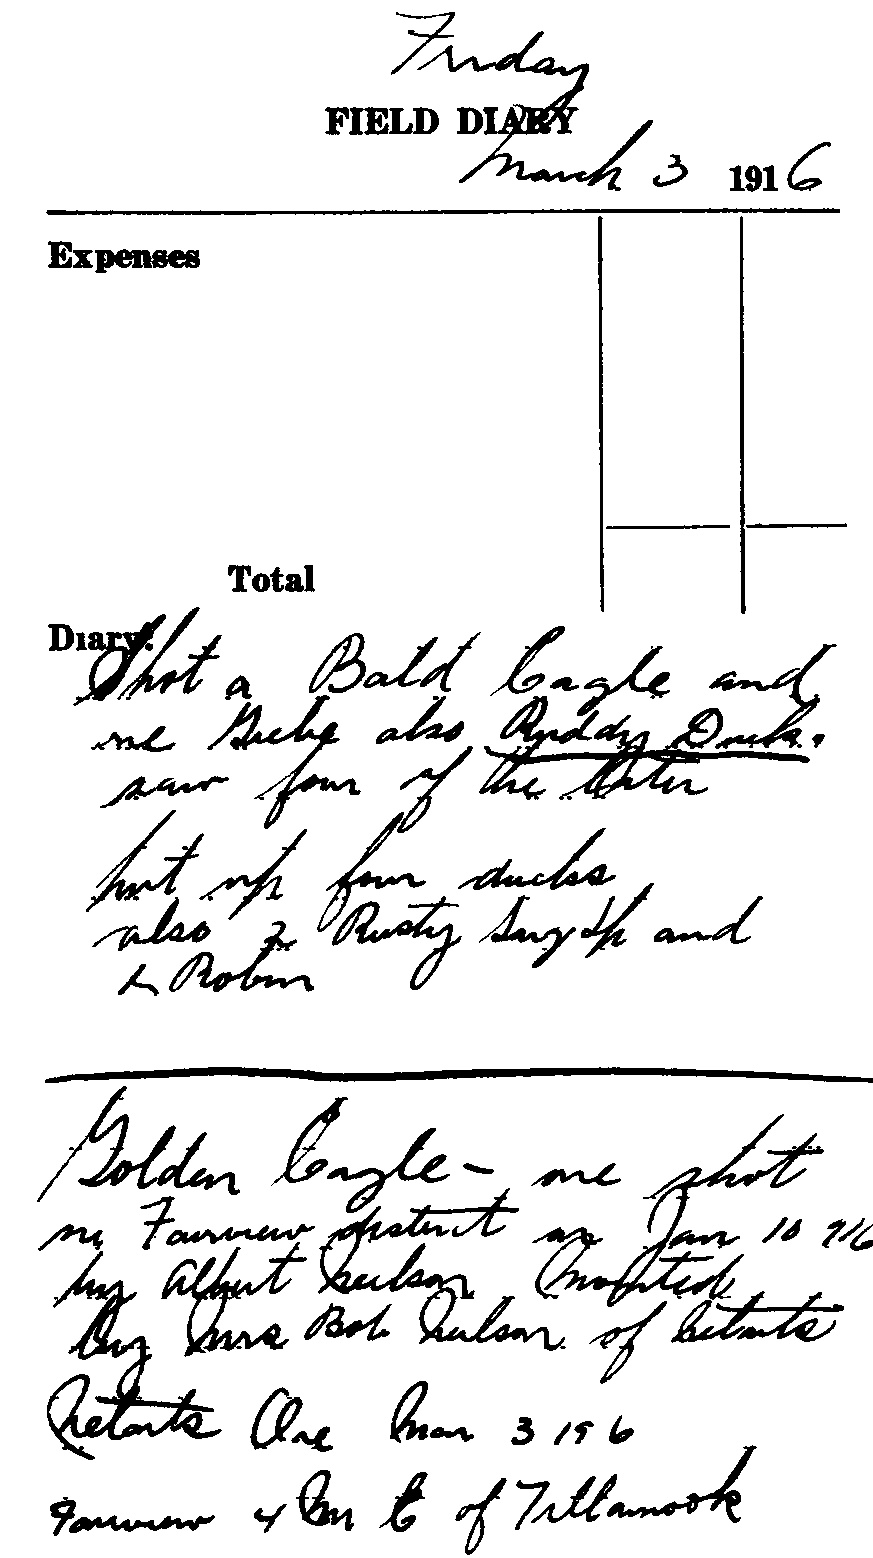 Friday
FIELD DIARY
March 3 1916
Expenses
Total
Diary:
Shot a Bald Eagle and
one Grebe also Ruddy Duck.
saw four of the later
put up four ducks
also 2 Rusty and
Robin
Golden Eagle - one shot
in Fairview district on Jan 10 916
by Albert Neilson Mounted
by Mrs Bob Neilson of Netarts
Netarts Ore Mar 3 196
Fairview 4 M E of Tillamook